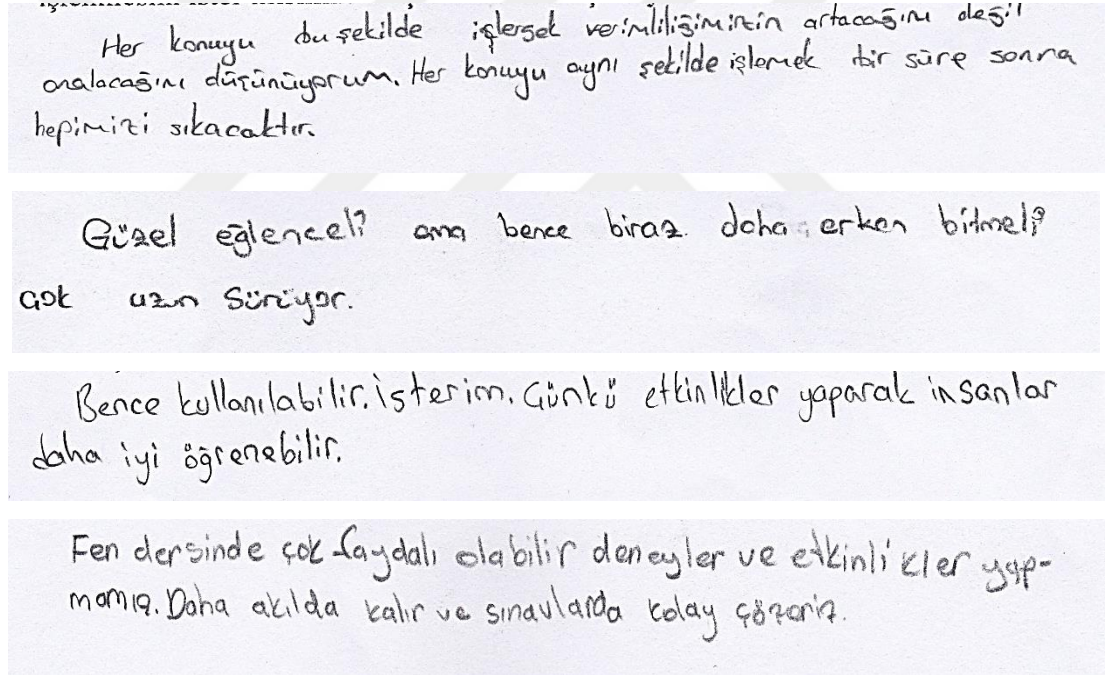 Her konuyu bu şekilde işlersek verimliliğimizin artacağını değil
azalacağını düşünüyorum. Her konuyu aynı şekilde işlemek bir süre sonra
hepimizi sıkacaktır.
Güzel eğlenceli ama bence biraz daha erken bitmeli
çok uzun sürüyor.
Bence kullanılabilir. İsterim. Çünkü etkinlikler yaparak insanlar
daha iyi öğrenebilir.
Fen dersinde çok faydalı olabilir deneyler ve etkinlikler yap-
mamız. Daha akılda kalır ve sınavlarda kolay çözeriz.